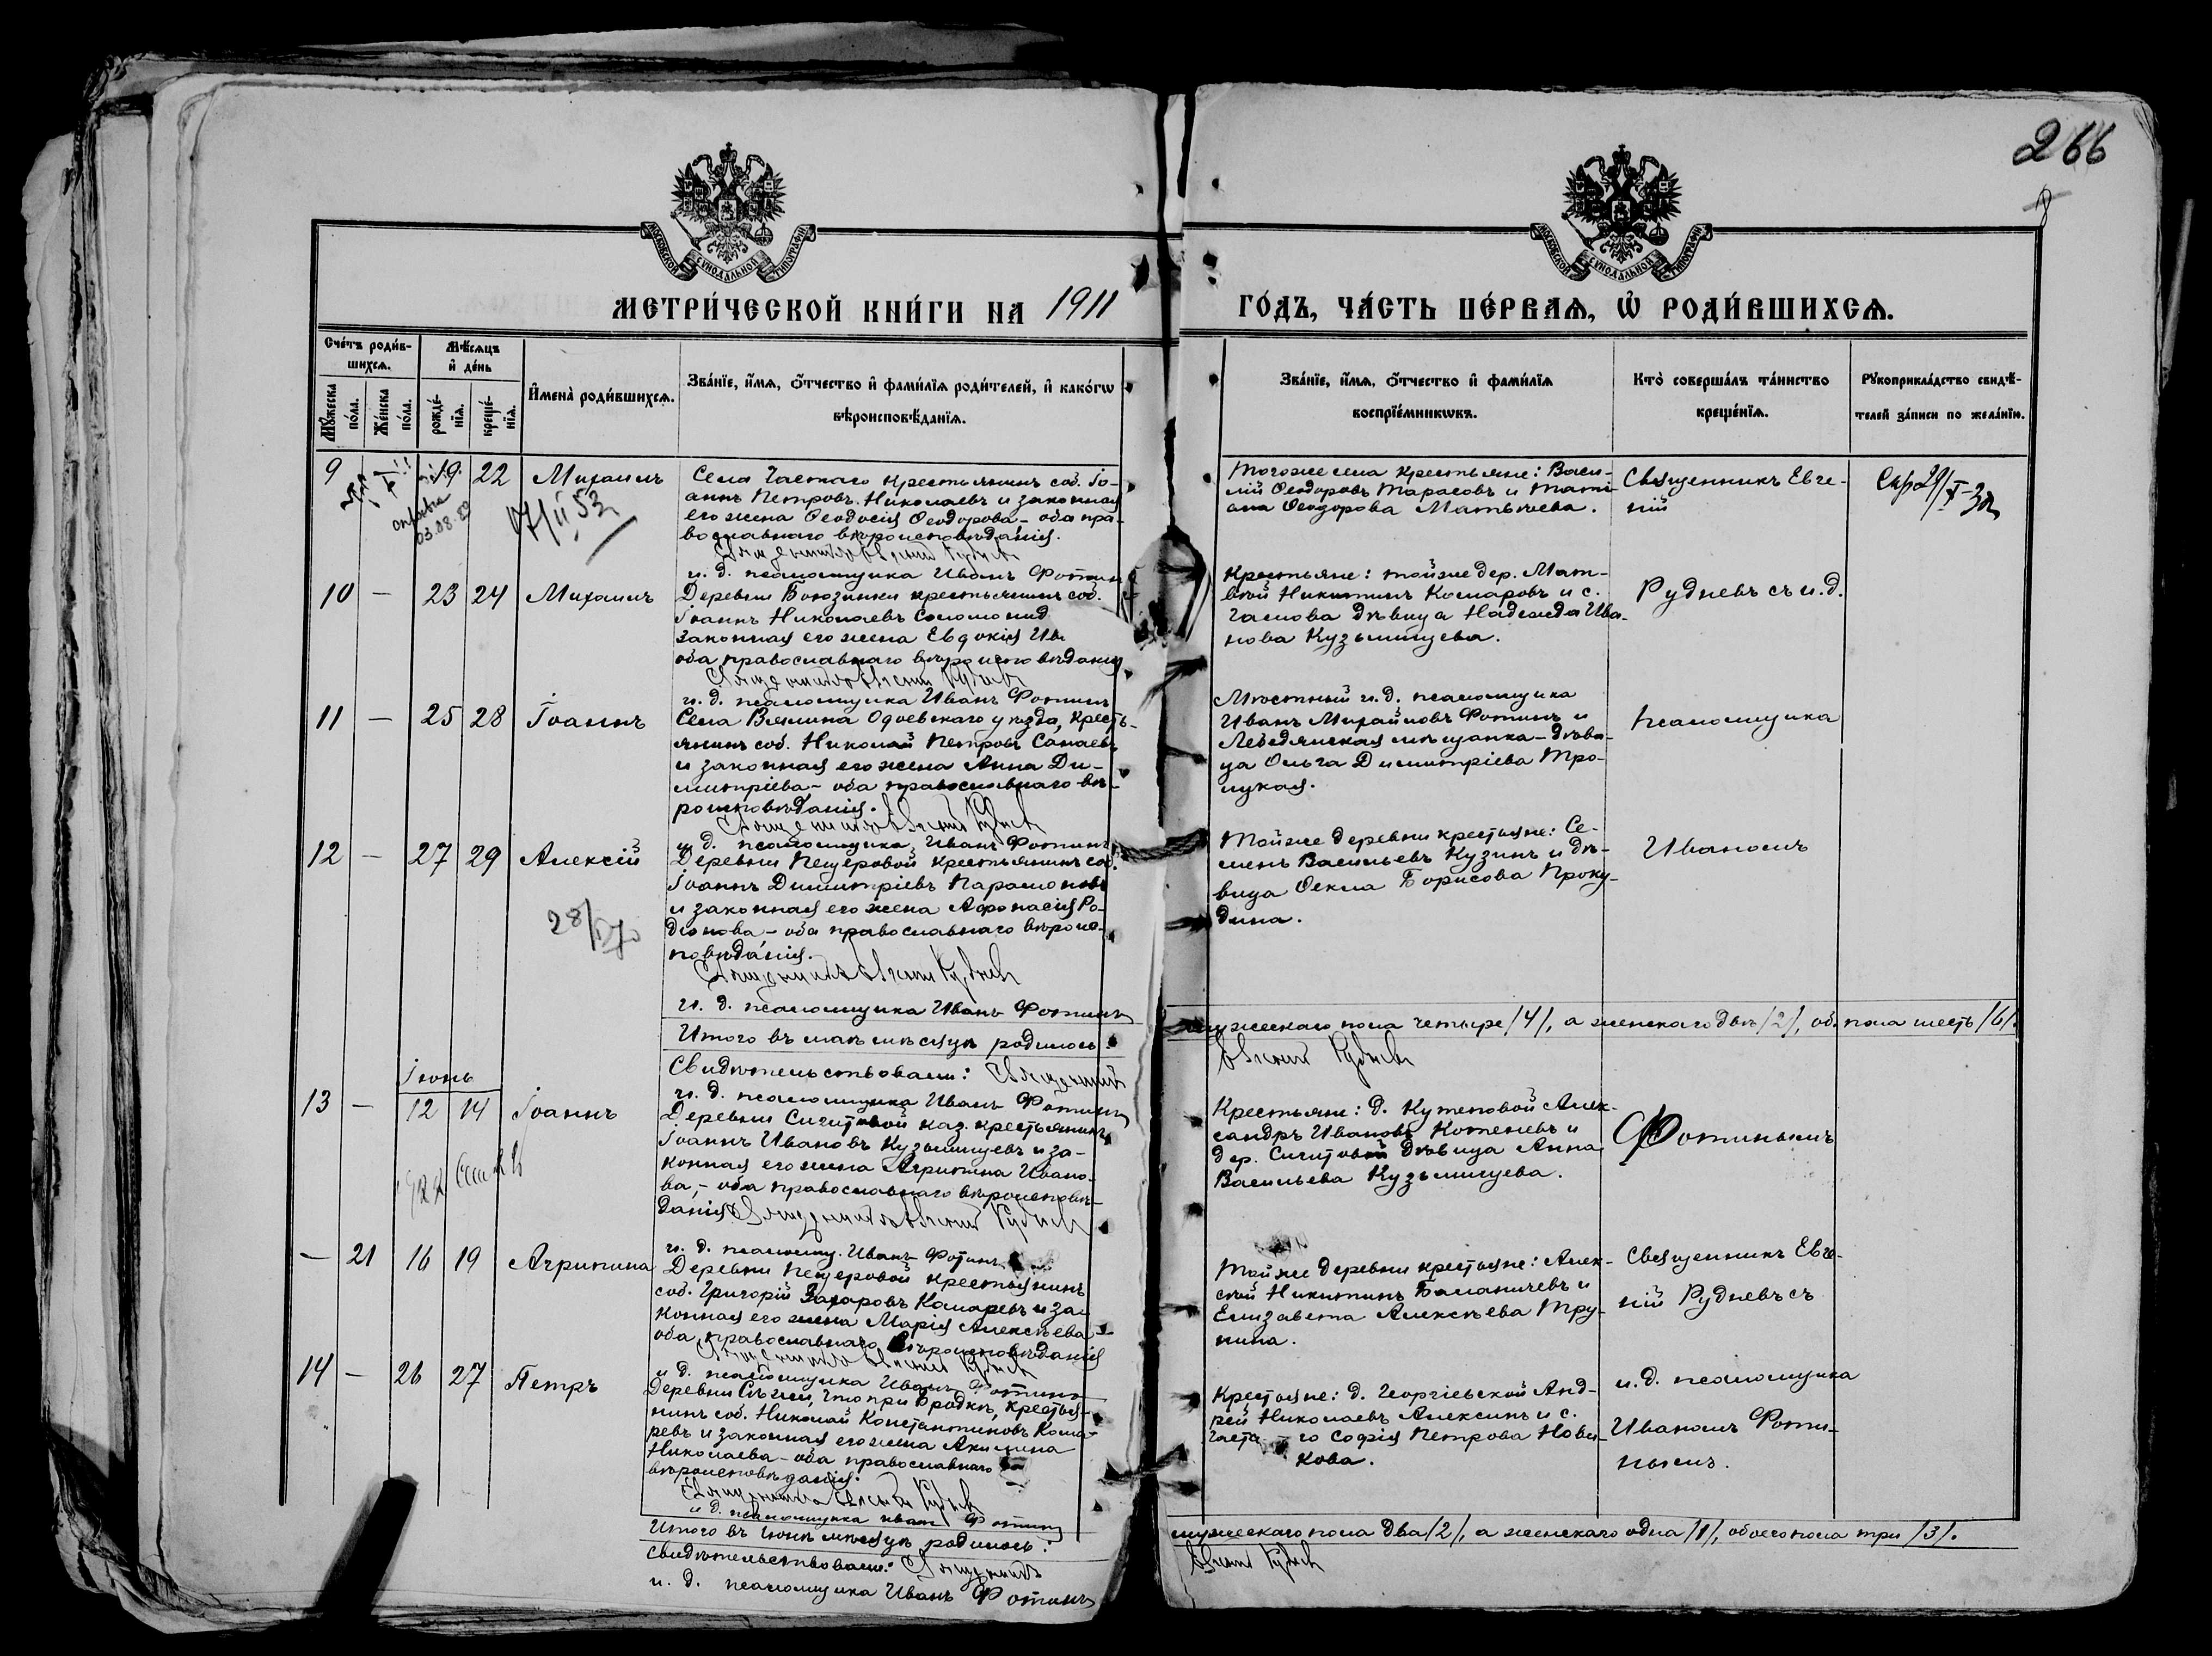 266
МОСКОВСКОЙ СѴНОДАЛЬНОЙ ТИПОГРАФІИ
МОСКОВСКОЙ СѴНОДАЛЬНОЙ ТИПОГРАФІИ
МЕТРИ́ЧЕСКОЙ КНИ́ГИ НА 1911
ГО́ДЪ, ЧА́СТЬ ПЕ́РВАѦ, Ѡ҆ РОДИ́ВШИХСѦ.
Сче́тъ роди́в-
шихсѧ.
Мꙋ́жеска по́ла.
Же́нска по́ла.
Мѣ́сѧцъ
и҆ де́нь
рожде́-нїѧ.
креще́-нїѧ.
И҆мена̀ роди́вшихсѧ.
Зва́нїе, и҆́мѧ, ѻ҆́тчество и҆ фами́лїѧ роди́телей, и҆ како́гѡ
вѣроисповѣ́данїѧ.
Зва́нїе, и҆́мѧ, ѻ҆́тчество и҆ фами́лїѧ
воспрїе́мникѡвъ.
Кто̀ соверша́лъ та́инство
креще́нїѧ.
Рꙋкоприкла́дство свидѣ́-
телей за́писи по жела́нїю.
9 19 22 Михаилъ
03.08.83
17/II 53
Села Частаго крестьянинъ соб. Іо-
аннъ Петровъ Николаевъ и законная
его жена Ѳеодосія Ѳеодорова – оба пра-
вославнаго вѣроисповѣданія.
Священникъ Евгеній Рудневъ
и. д. псаломщика Иванъ Фотинъ
Того же села крестьяне: Васи-
лій Ѳеодоровъ Тарасовъ и Тати-
ана Ѳеодорова Матвѣева.
Священникъ Евге-
ній
10 – 23 24 Михаилъ
Деревни крестьянинъ соб.
Іоаннъ Николаевъ
законная его жена Евдокія Ив
оба православнаго вѣроисповѣданія
Священникъ Евгеній Рудневъ
и. д. псаломщика Иванъ Фотинъ
Крестьяне: той же дер. Мат-
вѣй Никитинъ Комаровъ и с.
дѣвица Надежда Ива-
нова Кузьмищева.
Рудневъ съ и. д.
11 – 25 28 Іоаннъ
Села Вялина Одоевскаго уѣзда, кресть-
янинъ соб. Николай Петровъ Санаевъ
и законная его жена Анна Ди-
митріева – оба православнаго вѣ-
роисповѣданія.
Священникъ Евгеній Рудневъ
и. д. псаломщика, Иванъ Фотинъ
Мѣстный и. д. псаломщика
Иванъ Михайловъ Фотинъ и
Лебедянская мѣщанка – дѣви-
ца Ольга Димитріева Тро-
ицкая.
псаломщика
12 – 27 29 Алексій
Деревни Пещеровой крестьянинъ соб.
Іоаннъ Димитріевъ Парамоновъ
и законная его жена Аѳонасія Ро-
діонова – оба православнаго вѣроис-
повѣданія.
Священникъ Евгеній Рудневъ
и. д. псаломщика Иванъ Фотинъ
Той же деревни крестьяне: Се-
менъ Васильевъ Кузинъ и дѣ-
вица Ѳекла Борисова Проку-
дина.
Иваномъ
Итого въ маѣ мѣсяцѣ родилось:
мужескаго пола четыре /4/, а женскаго двѣ /2/, об. пола шесть /6/.
Свидѣтельствовали: Священникъ
Евгеній Рудневъ
и. д. псаломщика Иванъ Фотинъ
Іюнь
13 – 12 14 Іоаннъ
Деревни Сигитовой каз. крестьянинъ
Іоаннъ Ивановъ Кузьмищевъ и за-
конная его жена Агрипина Ивано-
ва, – оба православнаго вѣроисповѣ-
данія Священникъ Евгеній Рудневъ
и. д. псаломщ. Иванъ Фотинъ
Крестьяне: д. Кутеповой Алек-
сандръ Ивановъ Котеневъ и
дер. Сигитовой дѣвица Анна
Васильева Кузьмищева.
Фотинымъ
– 21 16 19 Агрипина
Деревни Пещеровой крестьянинъ
соб. Григорій Захаровъ Комаревъ и за-
конная его жена Марія Алексѣева –
оба православнаго вѣроисповѣданія
Священникъ Евгеній Рудневъ
и д. псаломщика Иванъ Фотинъ
Той же деревни крестьяне: Алек-
сѣй Никитинъ Баланичевъ и
Елизавета Алексѣева Тру-
нина.
Священникъ Евге-
ній Рудневъ съ
14 – 26 27 Петръ
Деревни Сѣжи, что при Бродкѣ, крестья-
нинъ соб. Николай Константиновъ Кома-
ревъ и законная его жена Акилина
Николаева – оба православнаго
вѣроисповѣданія.
Священникъ Евгеній Рудневъ
и д. псаломщика Иванъ Фотинъ
Крестьяне: д. Георгіевской Анд-
рей Николаевъ Алексинъ и с.
Частаго Софія Петрова Нови-
кова.
и. д. псаломщика
Иваномъ Фоти-
нымъ.
Итого въ іюнѣ мѣсяцѣ родилось:
мужескаго пола два /2/, а женскаго одна /1/, обоего пола три /3/.
Свидѣтельствовали: Священникъ
Евгеній Рудневъ
и. д. псаломщика Иванъ Фотинъ